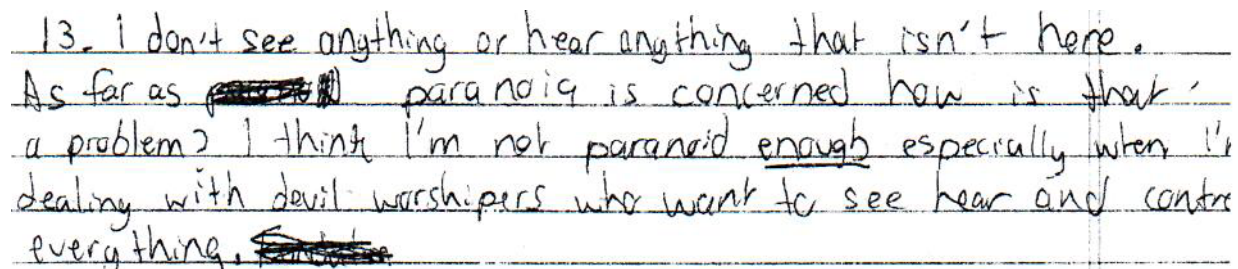 13. I don't see anything or hear anything that isn't here.
As far as paranoia is concerned how is that
a problem? I think I'm not paranoid enough especially when I'm
dealing with devil worshipers who want to see hear and contro
everything.